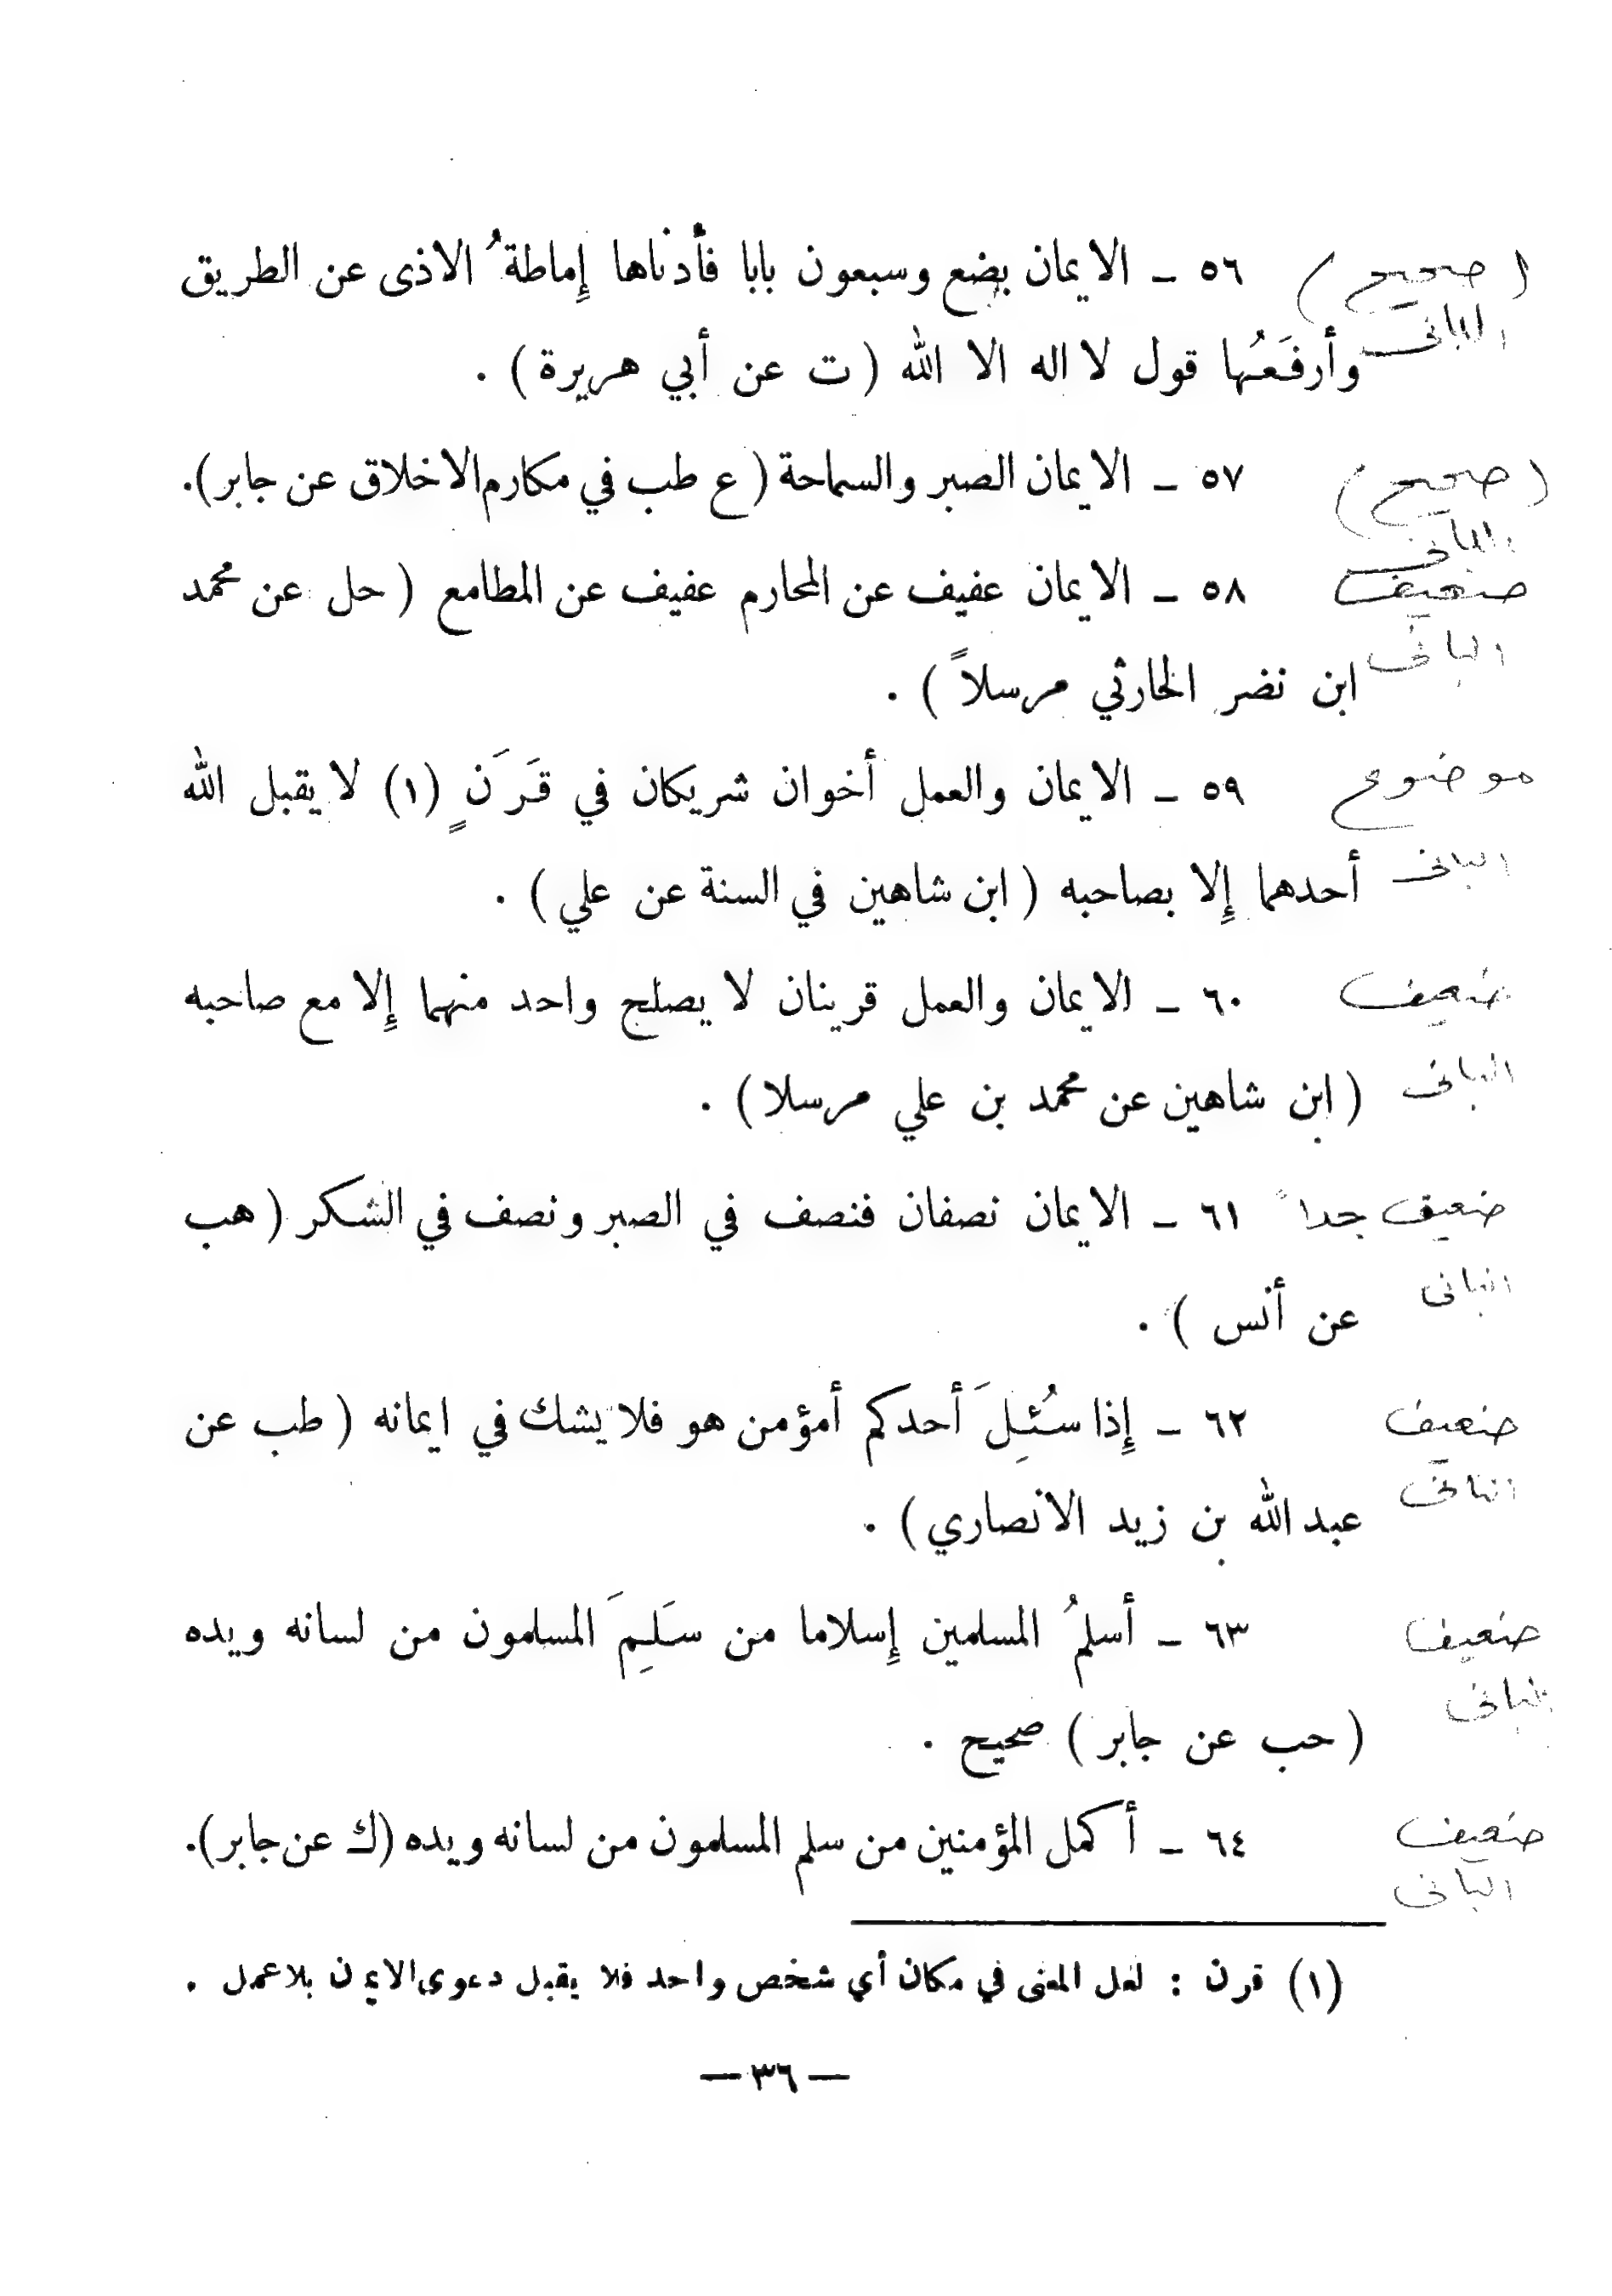 (صحيح) ٥٦ ـ الايمان بضع وسبعون بابا فأدناها إِماطةُ الاذى عن الطريق
البانى وأرفَعُها قول لا اله الا الله ( ت عن أبي هريرة ) .
(صحيح) ٥٧ ـ الايمان الصبر والسماحة ( ع طب في مكارم الاخلاق عن جابر).
البانى
ضعيف ٥٨ ـ الايمان عفيف عن المحارم عفيف عن المطامع ( حل عن محمد
البانى ابن نضر الحارثي مرسلاً ) .
موضوع ٥٩ ـ الايمان والعمل أخوان شريكان في قَرَنٍ (١) لا يقبل الله
البانى أحدهما إِلا بصاحبه ( ابن شاهين في السنة عن علي ) .
ضعيف ٦٠ ـ الايمان والعمل قرينان لا يصلح واحد منهما إِلا مع صاحبه
البانى ( ابن شاهين عن محمد بن علي مرسلا ) .
ضعيف جداً ٦١ ـ الايمان نصفان فنصف في الصبر ونصف في الشكر ( هب
البانى عن أنس ) .
ضعيف ٦٢ ـ إِذا سُئِلَ أحدكم أمؤمن هو فلا يشك في ايمانه ( طب عن
البانى عبد الله بن زيد الانصاري ) .
ضعيف ٦٣ ـ أسلمُ المسلمين إِسلاما من سَلِمَ المسلمون من لسانه ويده
البانى ( حب عن جابر ) صحيح .
ضعيف ٦٤ ـ أكمل المؤمنين من سلم المسلمون من لسانه ويده (ك عن جابر).
البانى
(١) قرن : لعل المعنى في مكان أي شخص واحد فلا يقبل دعوى الايمان بلا عمل .
— ٣٦ —